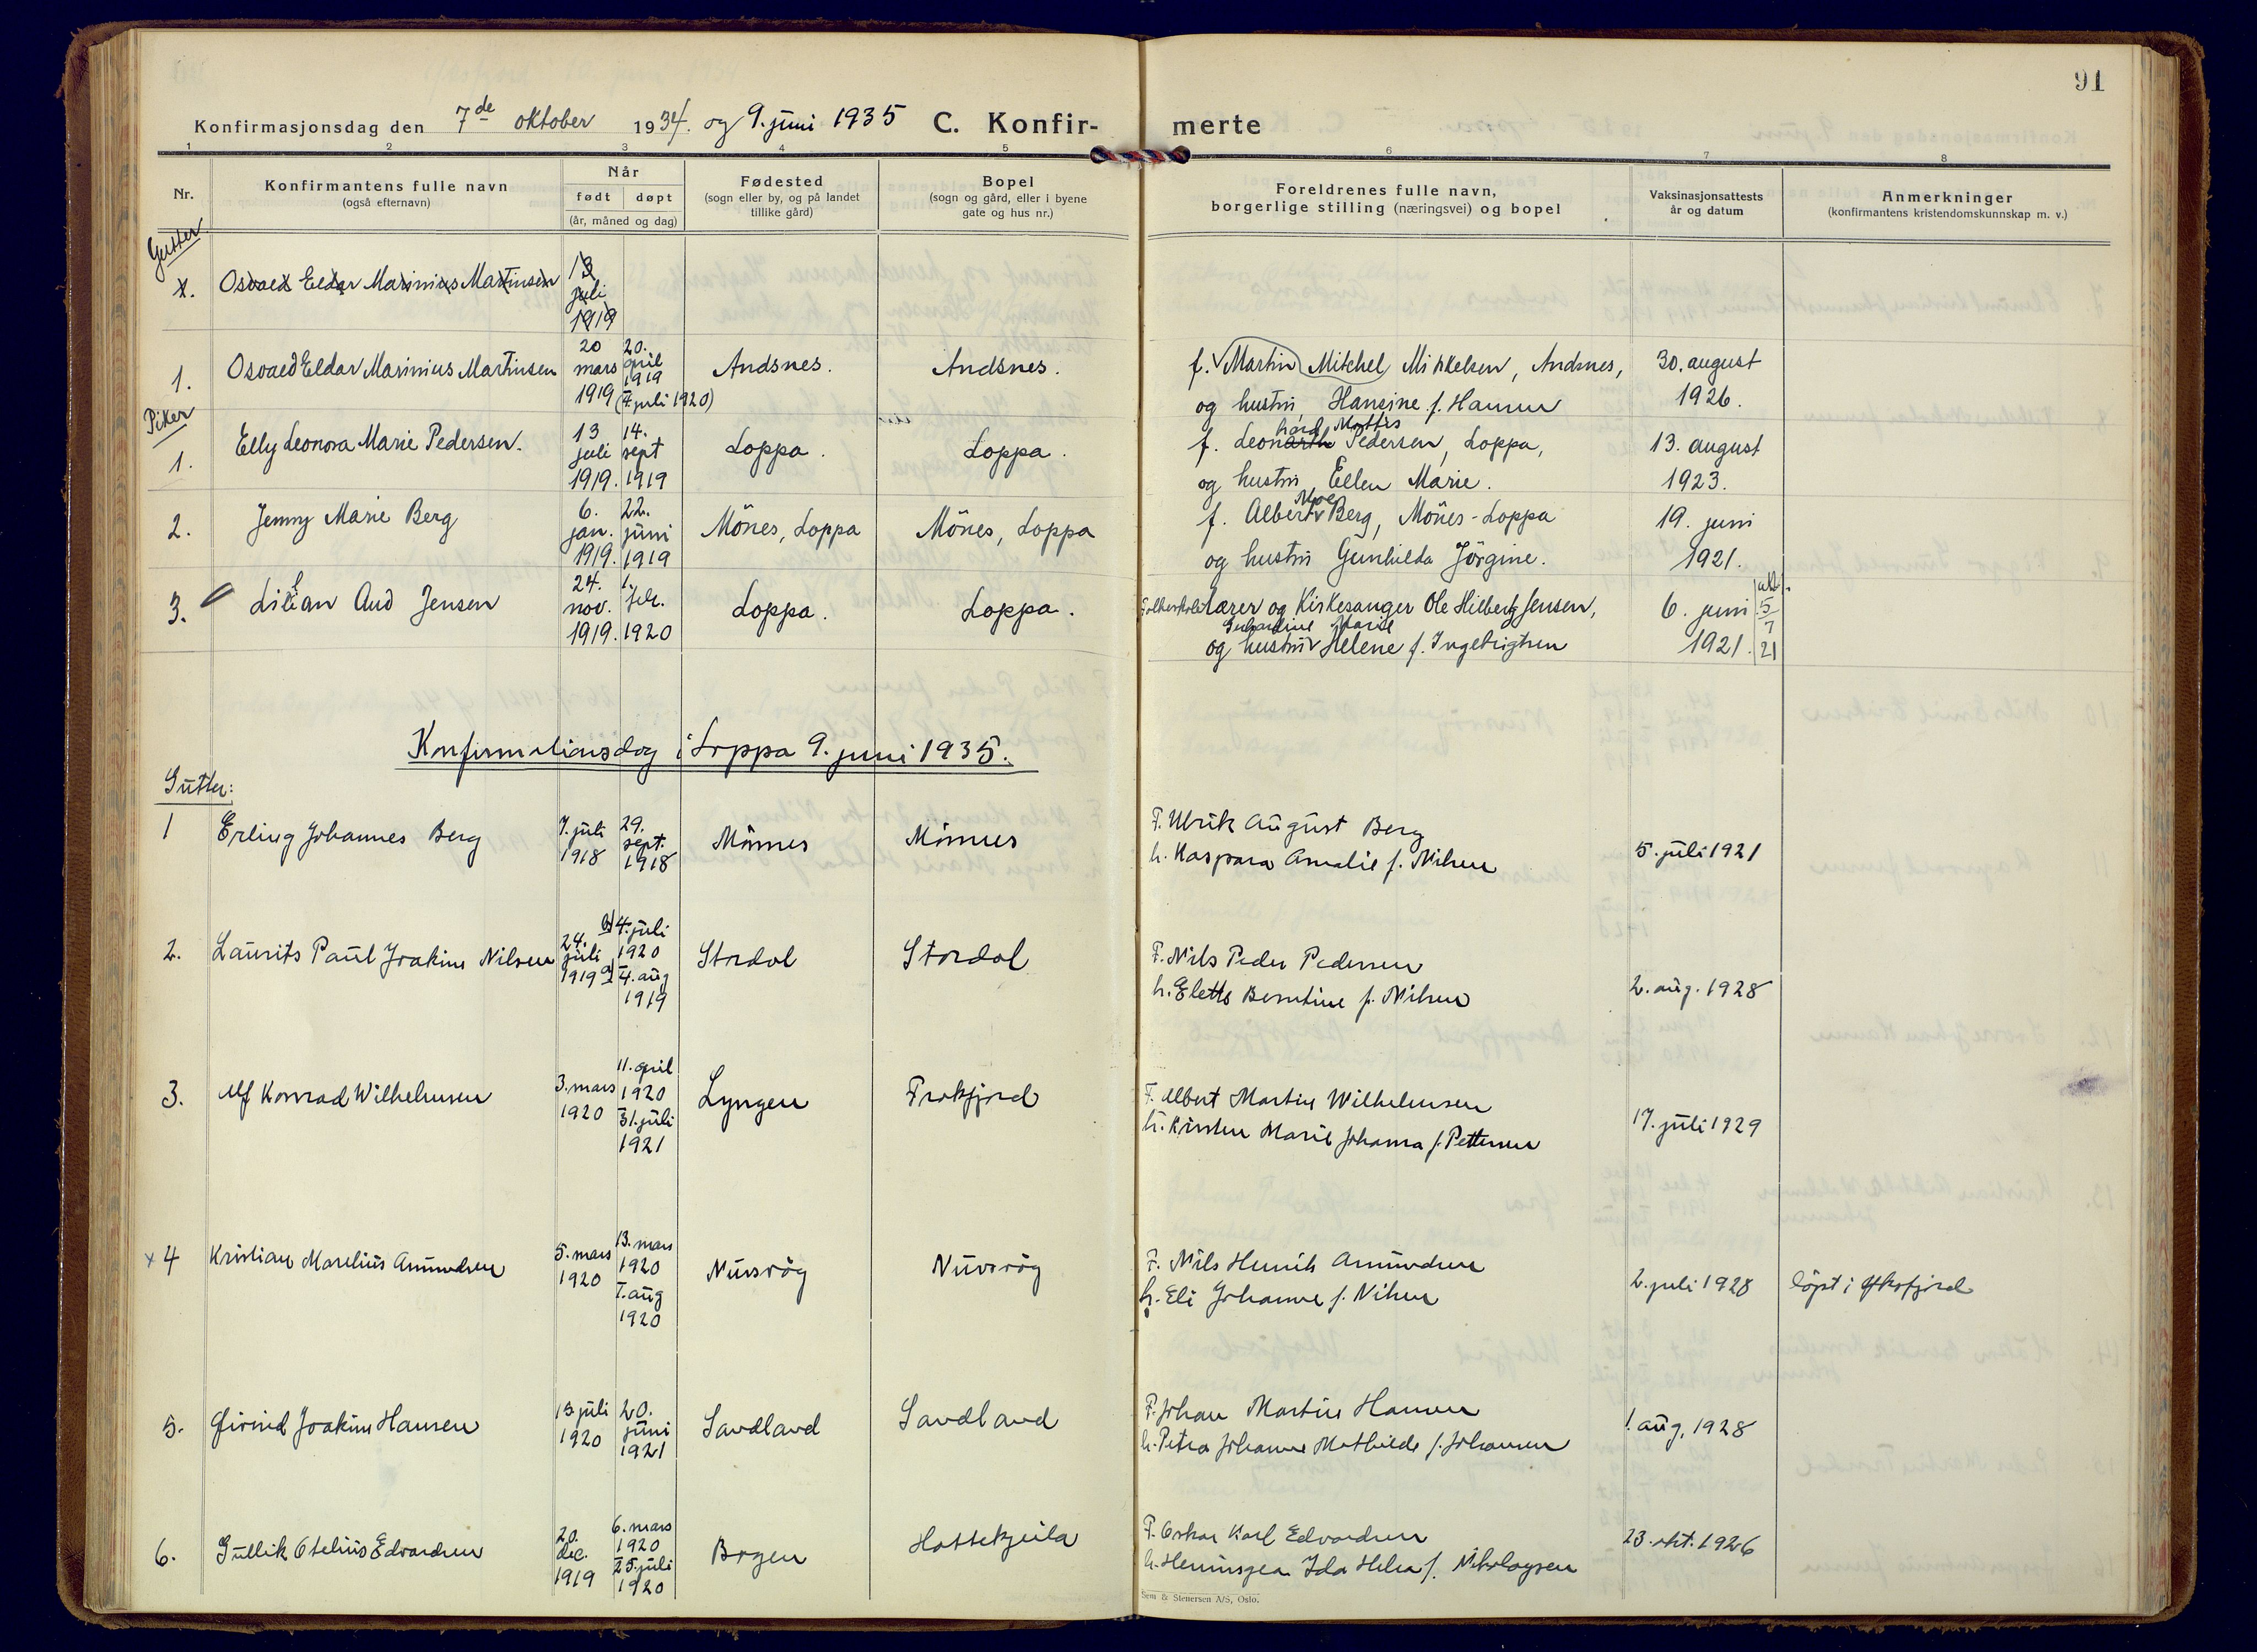 91
Konfirmasjonsdag den 7de oktober 1934. og 9. juni 1935 C. Konfir- merte
1 2 3 4 5 6 7 8
Nr.
Konfirmantens fulle navn
(også efternavn)
Når
født døpt
(år, måned og dag)
Fødested
(sogn eller by, og på landet
tillike gård)
Bopel
(sogn og gård, eller i byene
gate og hus nr.)
Foreldrenes fulle navn,
borgerlige stilling (næringsvei) og bopel
Vaksinasjonsattests
år og datum
Anmerkninger
(konfirmantens kristendomskunnskap m. v.)
Gutter
1. Osvald Eldar Marinius Martinsen
13
juli
1919
1. Osvald Eldar Marinius Martinsen
20 mars 1919
20. april 1919
(4 juli 1920)
Andsnes.
Andsnes.
f. Martin Mitchel Mikkelsen, Andsnes,
og hustru Hansine f. Hansen
30. august
1926.
Piker
1. Elly Leonora Marie Pedersen.
13 juli 1919.
14. sept 1919
Loppa.
Loppa.
hard Mathis
f. Leonarth Pedersen, Loppa,
og hustru Ellen Marie.
13. august
1923.
2. Jenny Marie Berg
6. jan. 1919.
22. juni 1919
Mönes, Loppa
Mönes, Loppa
Moe
f. Albert Berg, Mönes - Loppa
og hustru Gunhilda Jörgine.
19. juni
1921.
3. Lillian Aud Jensen
24. nov. 1919.
1. febr. 1920
Loppa.
Loppa.
lærer og Kirkesanger Ole Hilberg Jensen,
Marie
og hustru Helene f. Ingebrigtsen
6. juni
1921.
5
7
21
Konfirmationsdag i Loppa 9. juni 1935.
Gutter:
1 Erling Johannes Berg
7. juli
1918
29.
sept.
1918
Mönnes
Mönnes
F. Ulrik August Berg
h. Kaspara Amalie f. Nilsen
5. juli 1921
2. Laurits Paul Joakim Nilsen
24.
juli
1919
b) 4. juli
1920
a) 4. aug
1919
Stordal
Stordal
F. Nils Peder Pedersen
h. Berntine f. Nilsen
2. aug. 1928
3. Alf Konrad Wilhelmsen
3. mars
1920
11. april
1920
31. juli
1921
Lyngen
Frakfjord
F. Albert Martin Wilhelmsen
h. Kirsten Marie Johanna f. Pettersen
17. juli 1929
x 4 Kristian Marelius Amundsen
5. mars
1920
13. mars
1920
1. aug
1920
Nuvsvög
Nuvsvög
F. Nils Henrik Amundsen
h. Eli Johanne f. Nilsen
2. juli 1928
löpt i Öksfjord
5. Øivind Joakim Hansen
13 juli
1920
20.
juni
1921
Sandland
Sandland
F. Johan Martin Hansen
h. Petra Johanne Mathilde f. Johansen
1 aug. 1928
6. Gullik Otelius Edvardsen
20.
dec.
1919
6. mars
1920
25. juli
1920
Bogen
F. Oskar Karl Edvardsen
h. Ida Helea f. Nikolaysen
23. okt. 1926
Sem & Stenersen A/S, Oslo.